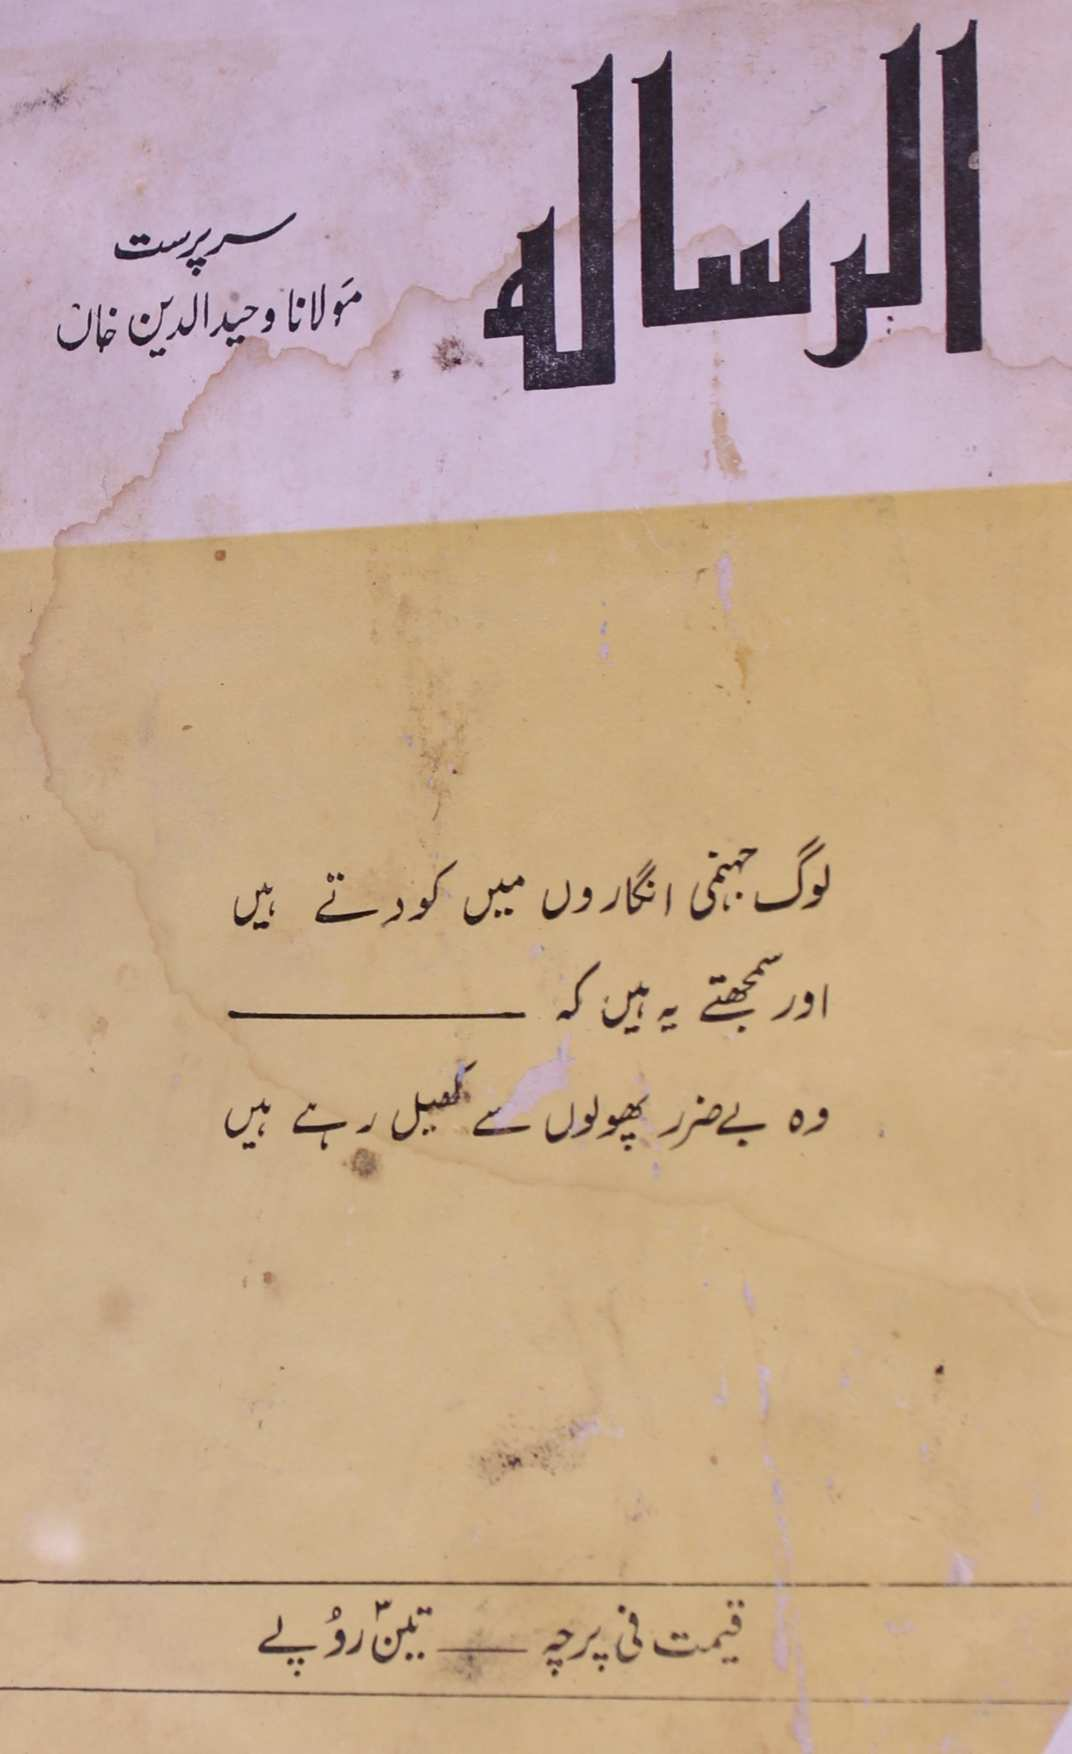 الرسالہ
سرپرست
مولانا وحید الدین خاں
لوگ جہنمی انگاروں میں کودتے ہیں
اور سمجھتے یہ ہیں کہ ———
وہ بے ضرر پھولوں سے کھیل رہے ہیں
قیمت فی پرچہ —— تین روپے